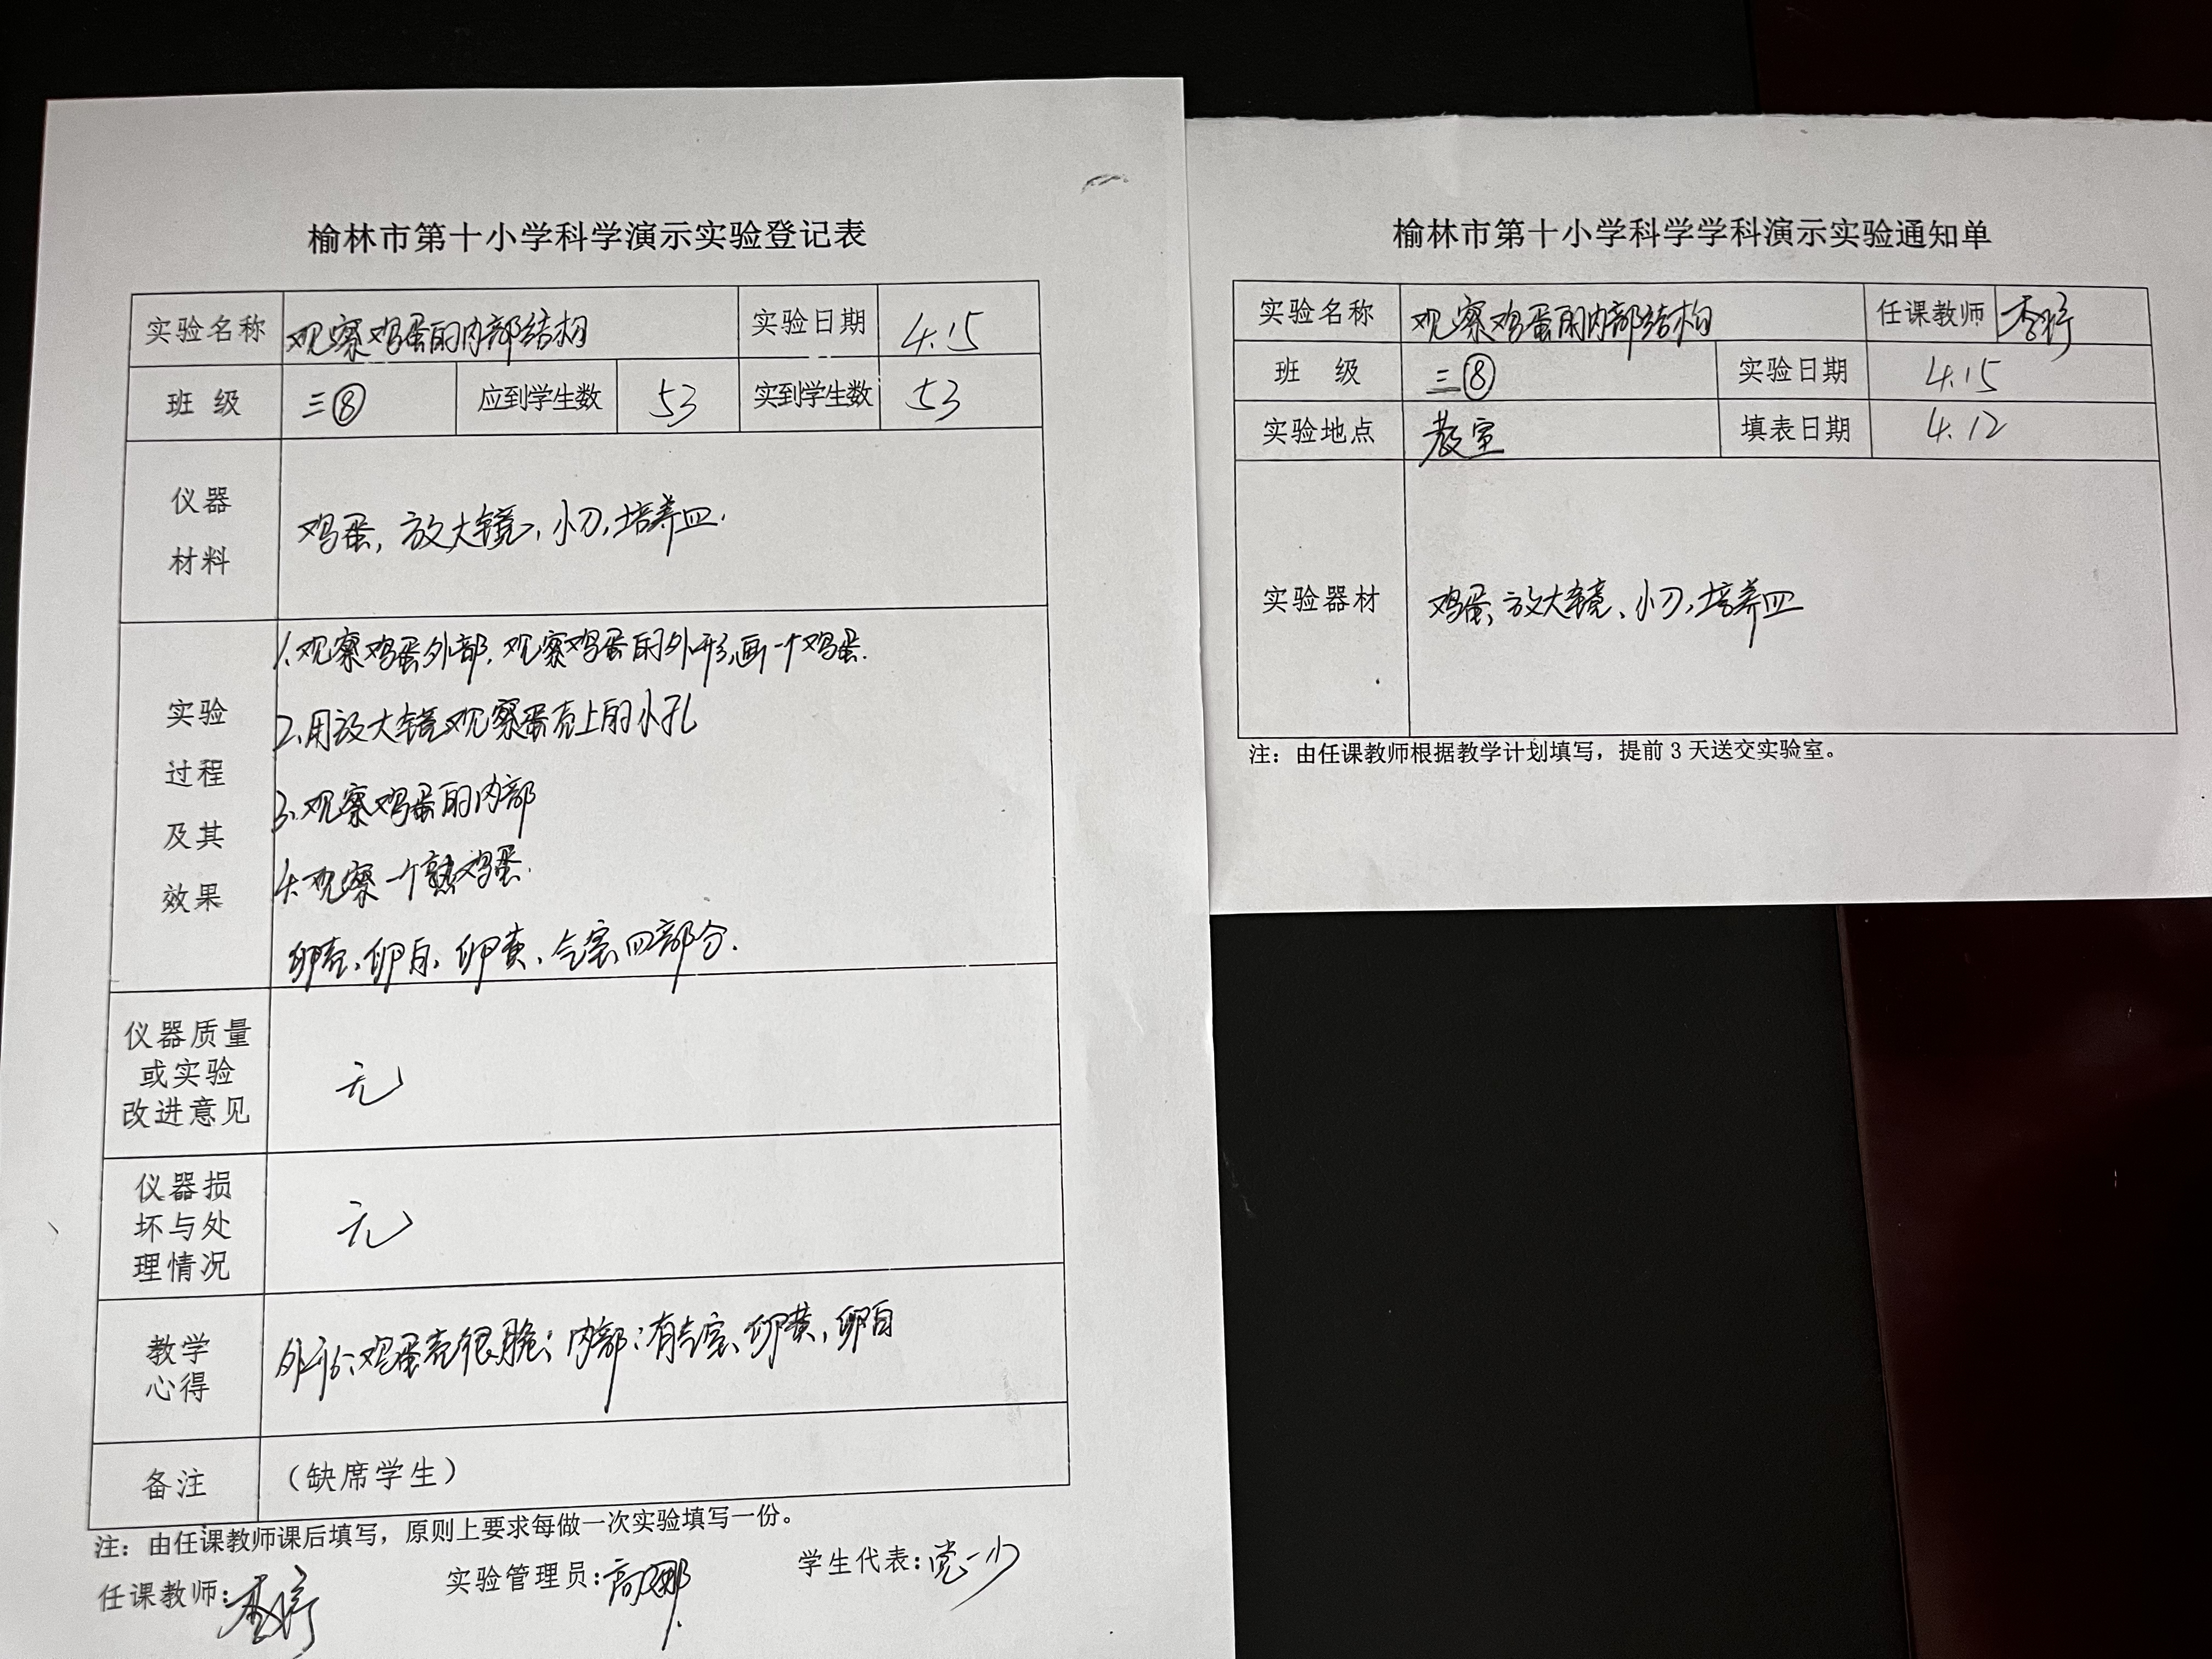 榆林市第十小学科学演示实验登记表
实验名称 观察鸡蛋的内部结构 实验日期 4.15
班 级 三⑧ 应到学生数 53 实到学生数 53
仪器
材料
鸡蛋, 放大镜, 小刀, 培养皿.
实验
过程
及其
效果
1.观察鸡蛋外部, 观察鸡蛋的外形,画一个鸡蛋.
2.用放大镜观察蛋壳上的小孔
3.观察鸡蛋的内部
4.观察一个熟鸡蛋.
卵壳、卵白、卵黄、气室四部分.
仪器质量
或实验
改进意见
无
仪器损
坏与处
理情况
无
教学
心得
外部:鸡蛋壳很脆; 内部:有气室、卵黄, 卵白
备注 (缺席学生)
注:由任课教师课后填写,原则上要求每做一次实验填写一份。
任课教师:李婷 实验管理员:高娜 学生代表:党一少
榆林市第十小学科学学科演示实验通知单
实验名称 观察鸡蛋的内部结构 任课教师 李婷
班 级 三⑧ 实验日期 4.15
实验地点 教室 填表日期 4.12
实验器材 鸡蛋, 放大镜、小刀,培养皿
注:由任课教师根据教学计划填写,提前3天送交实验室。